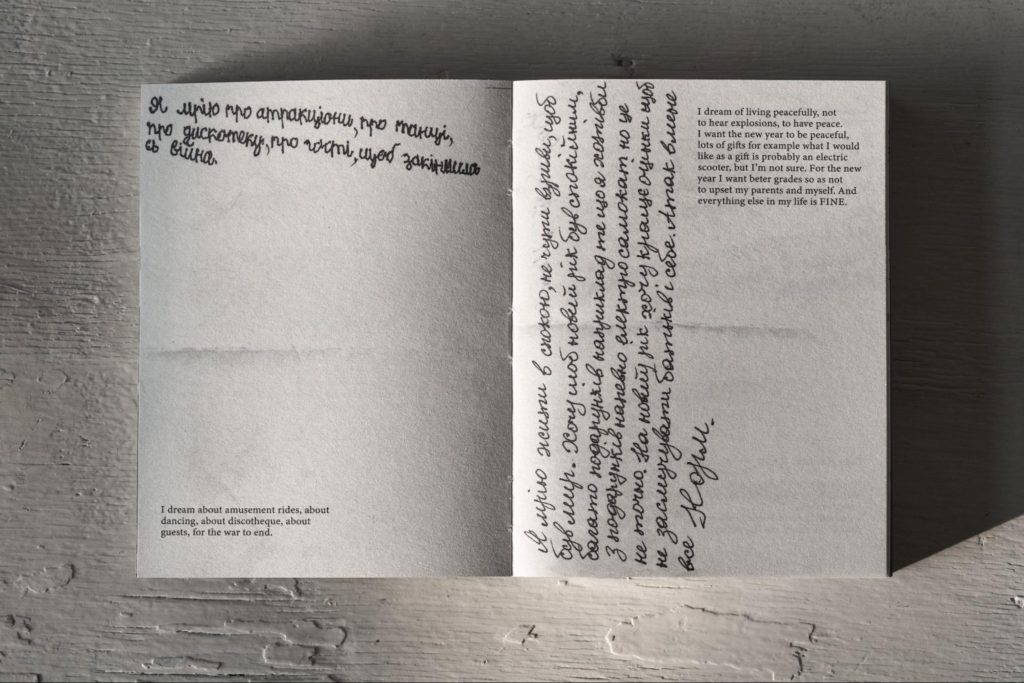 Я мрію про атракціони, про танці,
про дискотеку, про гості, щоб закінчила
сь війна.
I dream about amusement rides, about
dancing, about discotheque, about
guests, for the war to end.
Я мрію жити в спокою, не чути взриви, щоб
був мир. Хочу щоб новий рік був спокійним,
багато подарунків наприклад те що я хотівби
з подарунків напевно електро самокат но це
не точно. На новий рік хочу кращє оцінки щоб
не засмучувати батьків і себе. А так в мене
все Норм.
I dream of living peacefully, not
to hear explosions, to have peace.
I want the new year to be peaceful,
lots of gifts for example what I would
like as a gift is probably an electric
scooter, but I'm not sure. For the new
year I want beter grades so as not
to upset my parents and myself. And
everything else in my life is FINE.